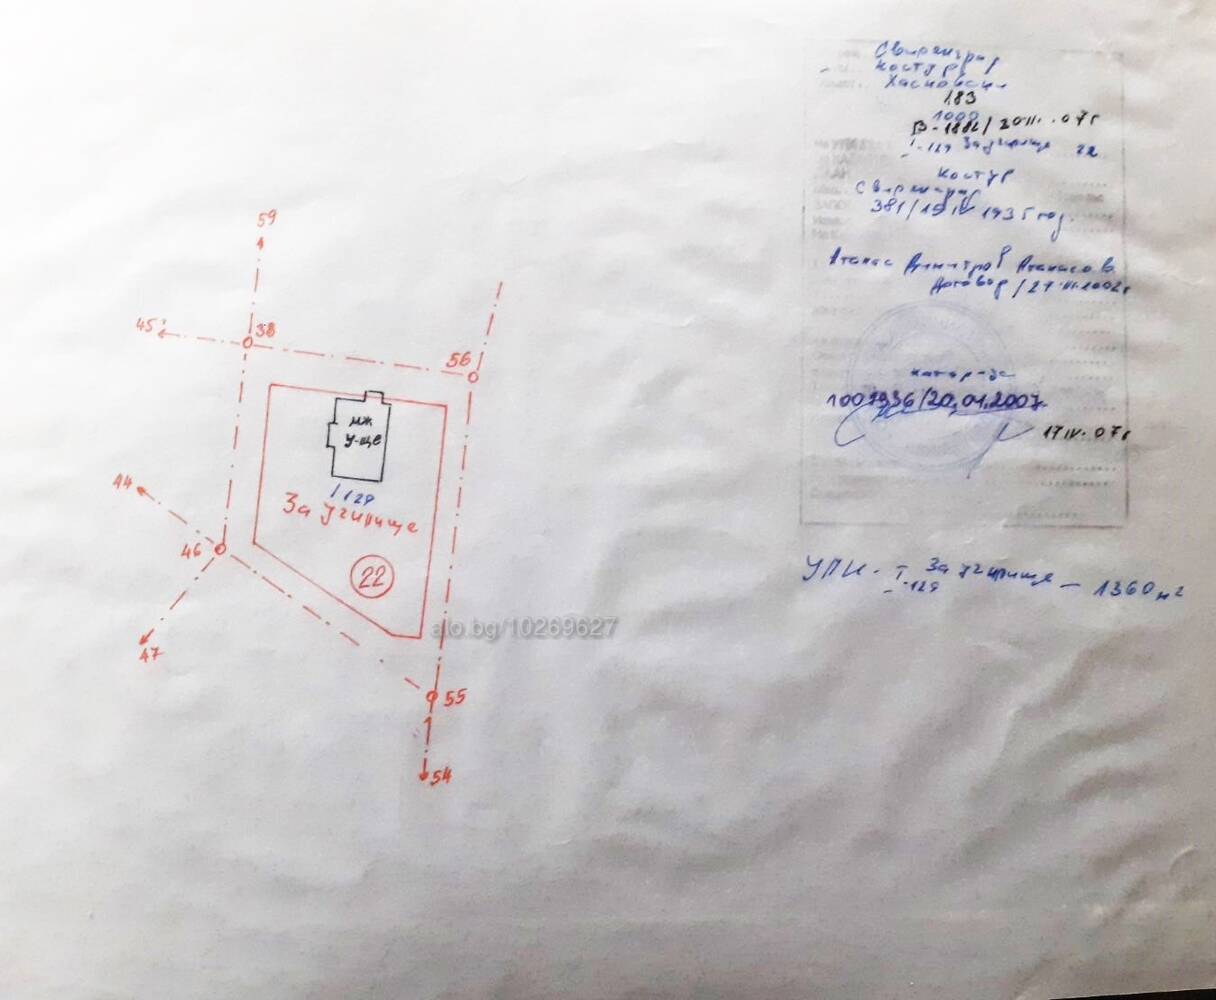 59
45
58
56
мж
у-ще
I 129
За училище
44
46
22
47
55
54
alo.bg/10269627
Свиленград
Костур
Хасковска
183
1000
В-1882/20 II. 07г
I-129 За училище 22
Костур
Свиленград
381/15 IV 1935 год.
Атанас Димитров Атанасов
Договор/27.III.2002г
катор-ж
1007936/20.04.2007
17 IV. 07г
УПИ - I-129 За училище - 1360 м²